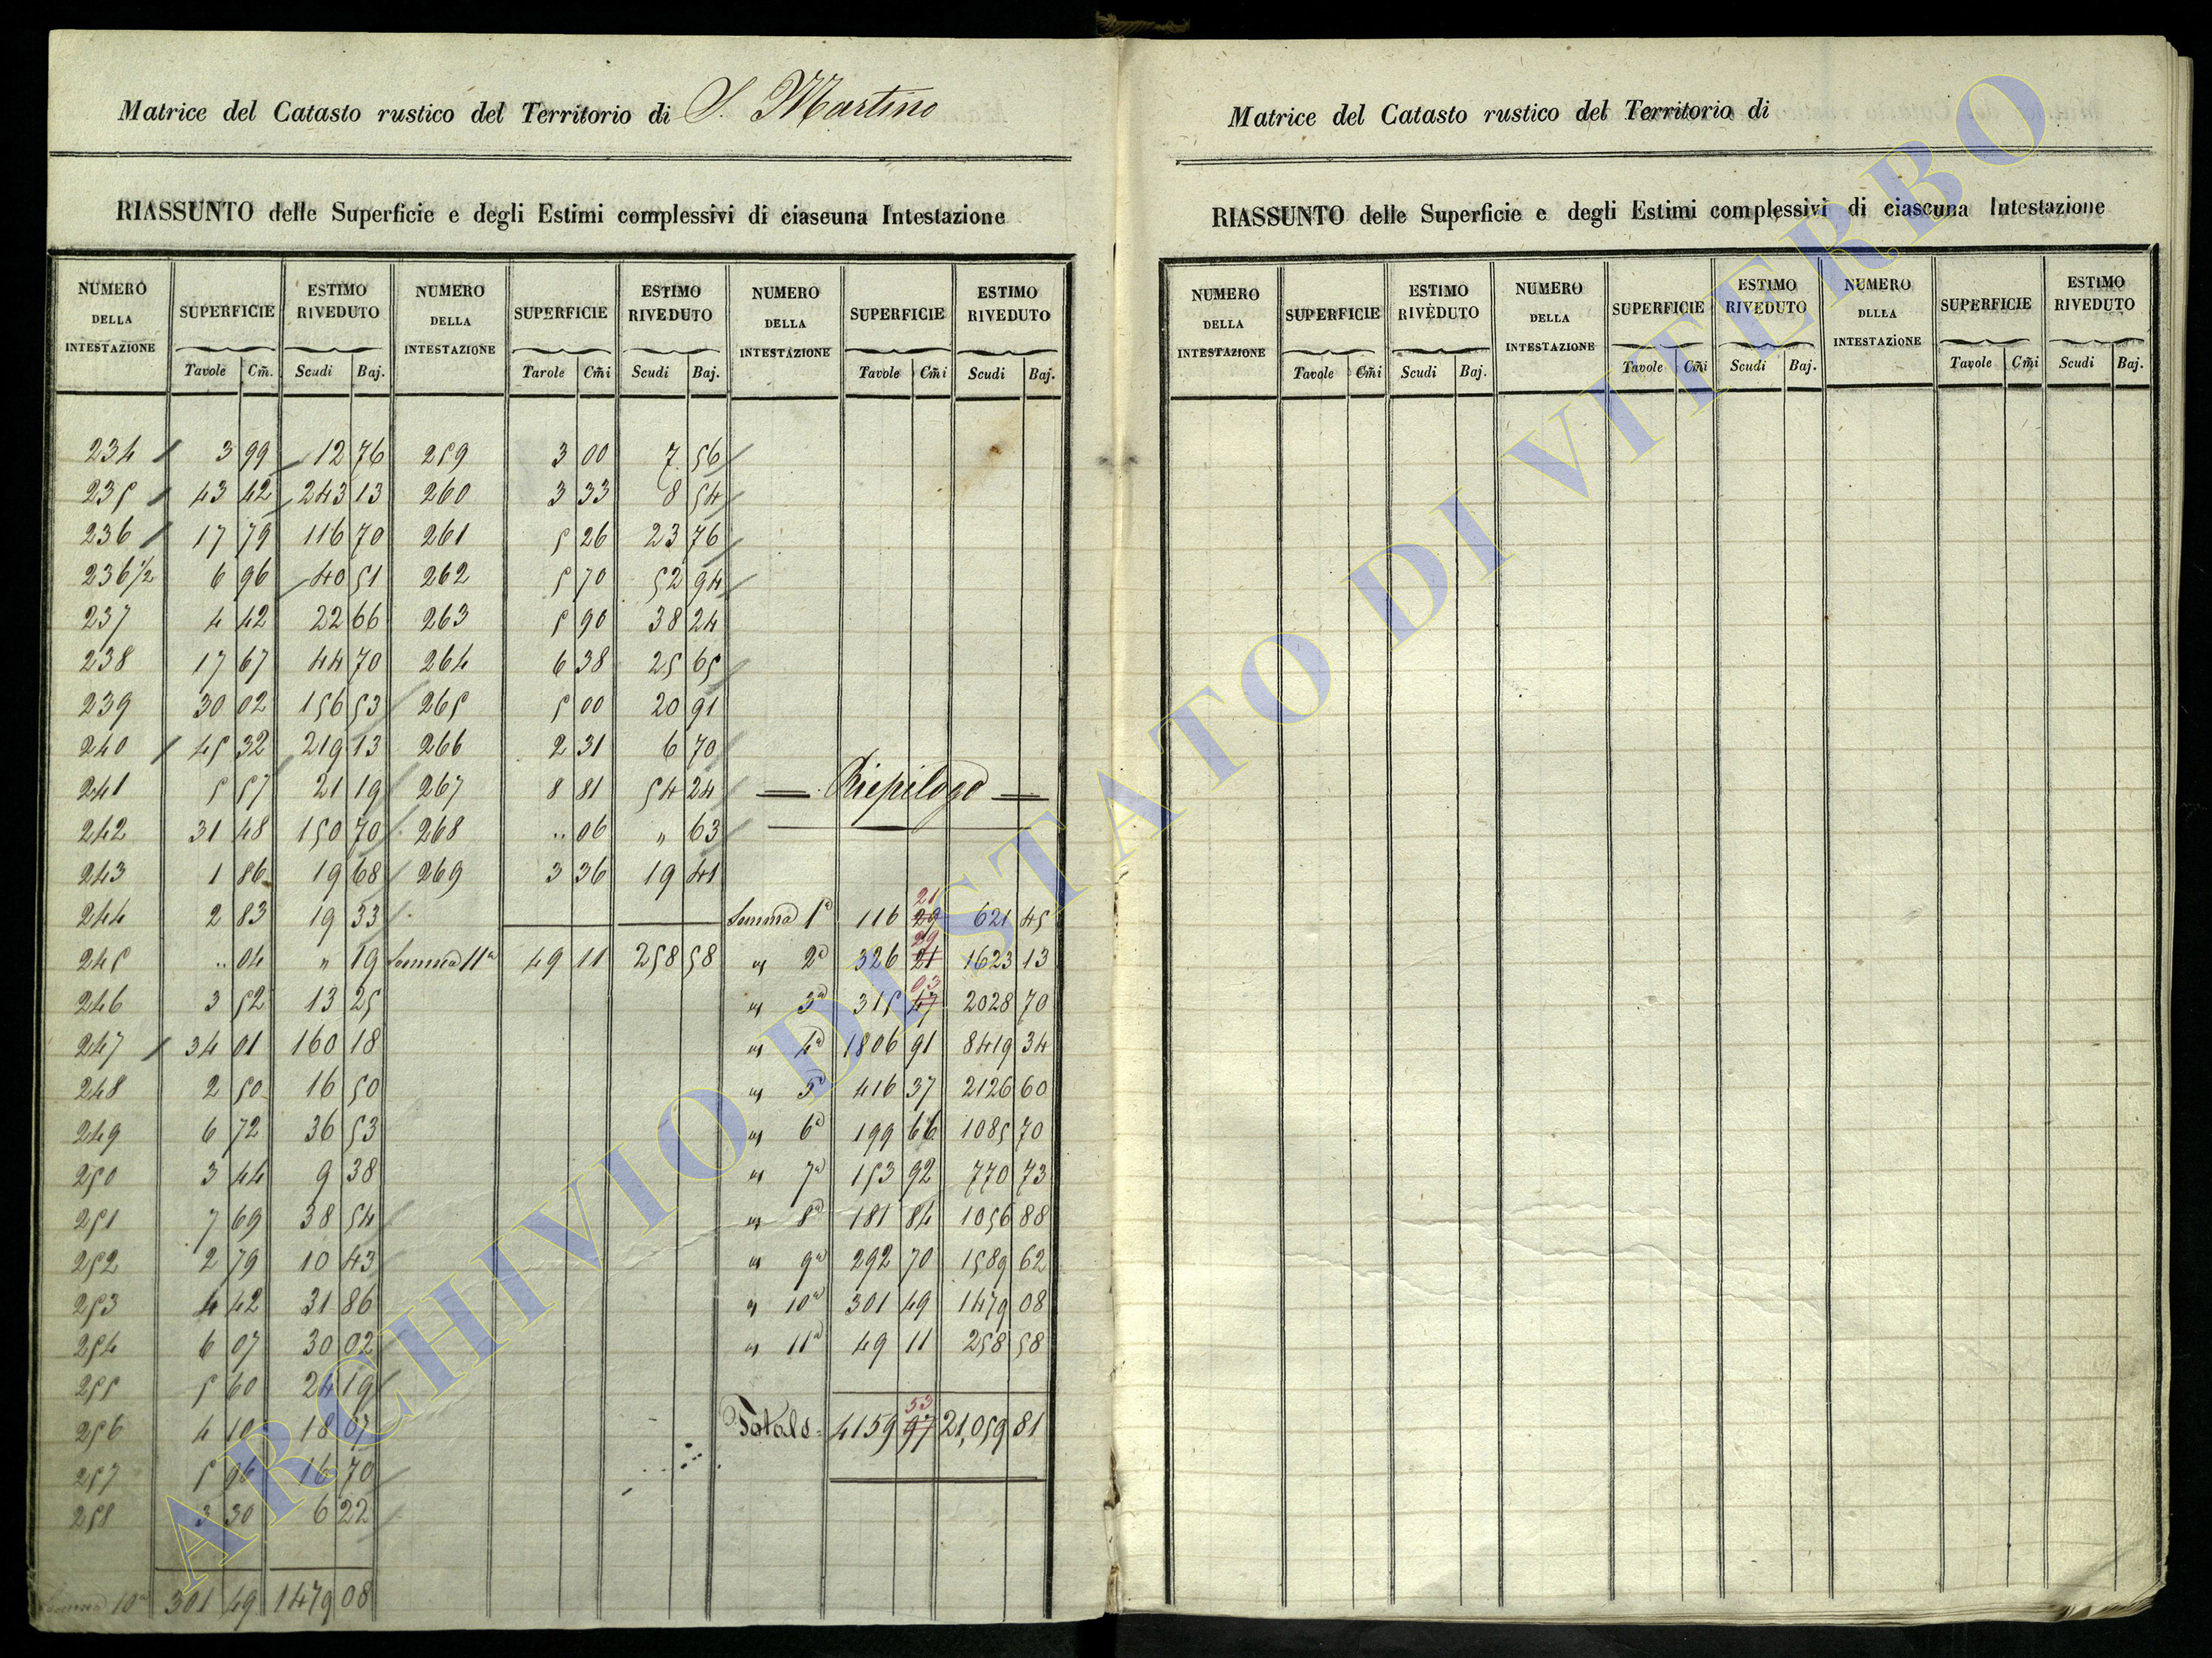 Matrice del Catasto rustico del Territorio di S. Martino
RIASSUNTO delle Superficie e degli Estimi complessivi di ciascuna Intestazione
NUMERO DELLA INTESTAZIONE SUPERFICIE ESTIMO RIVEDUTO NUMERO DELLA INTESTAZIONE SUPERFICIE ESTIMO RIVEDUTO NUMERO DELLA INTESTAZIONE SUPERFICIE ESTIMO RIVEDUTO
Tavole Cm̃. Scudi Baj. Tavole Cm̃i Scudi Baj. Tavole Cm̃i Scudi Baj.
234 3 99 12 76
235 43 42 243 13
236 17 79 116 70
236 1/2 6 96 40 51
237 4 42 22 66
238 17 67 44 70
239 30 02 156 53
240 45 32 219 13
241 5 57 21 19
242 31 48 150 70
243 1 86 19 68
244 2 83 19 33
245 .. 04 " 19
246 3 52 13 25
247 34 01 160 18
248 2 50 16 50
249 6 72 36 53
250 3 44 9 38
251 7 69 38 54
252 2 79 10 43
253 4 42 31 86
254 6 07 30 02
255 5 60 24 19
256 4 10 18 07
257 5 96 16 70
258 3 30 6 22
Somma 10a 301 49 1479 08
259 3 00 7 56
260 3 33 8 54
261 5 26 23 76
262 5 70 52 94
263 5 90 38 24
264 6 38 25 65
265 5 00 20 91
266 2 31 6 70
267 8 81 54 24
268 .. 06 " 63
269 3 36 19 41
Somma 11a 49 11 258 58
Riepilogo
21
Somma 1a 116 29 621 45
29
" 2a 326 21 1623 13
03
" 3a 315 47 2028 70
" 4a 1806 91 8419 34
" 5a 416 37 2126 60
" 6a 199 66 1085 70
" 7a 153 92 770 73
" 8a 181 84 1056 88
" 9a 292 70 1589 62
" 10a 301 49 1479 08
" 11a 49 11 258 58
53
Totale = 4159 97 21,059 81
Matrice del Catasto rustico del Territorio di
RIASSUNTO delle Superficie e degli Estimi complessivi di ciascuna Intestazione
NUMERO DELLA INTESTAZIONE SUPERFICIE ESTIMO RIVEDUTO NUMERO DELLA INTESTAZIONE SUPERFICIE ESTIMO RIVEDUTO NUMERO DLLLA INTESTAZIONE SUPERFICIE ESTIMO RIVEDUTO
Tavole Cm̃i Scudi Baj. Tavole Cm̃i Scudi Baj. Tavole Cm̃i Scudi Baj.
ARCHIVIO DI STATO DI VITERBO